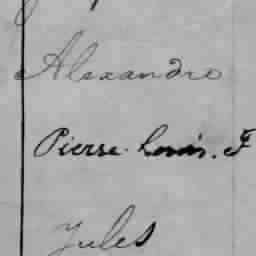 Alexandre
Pierre Louis. F
Jules